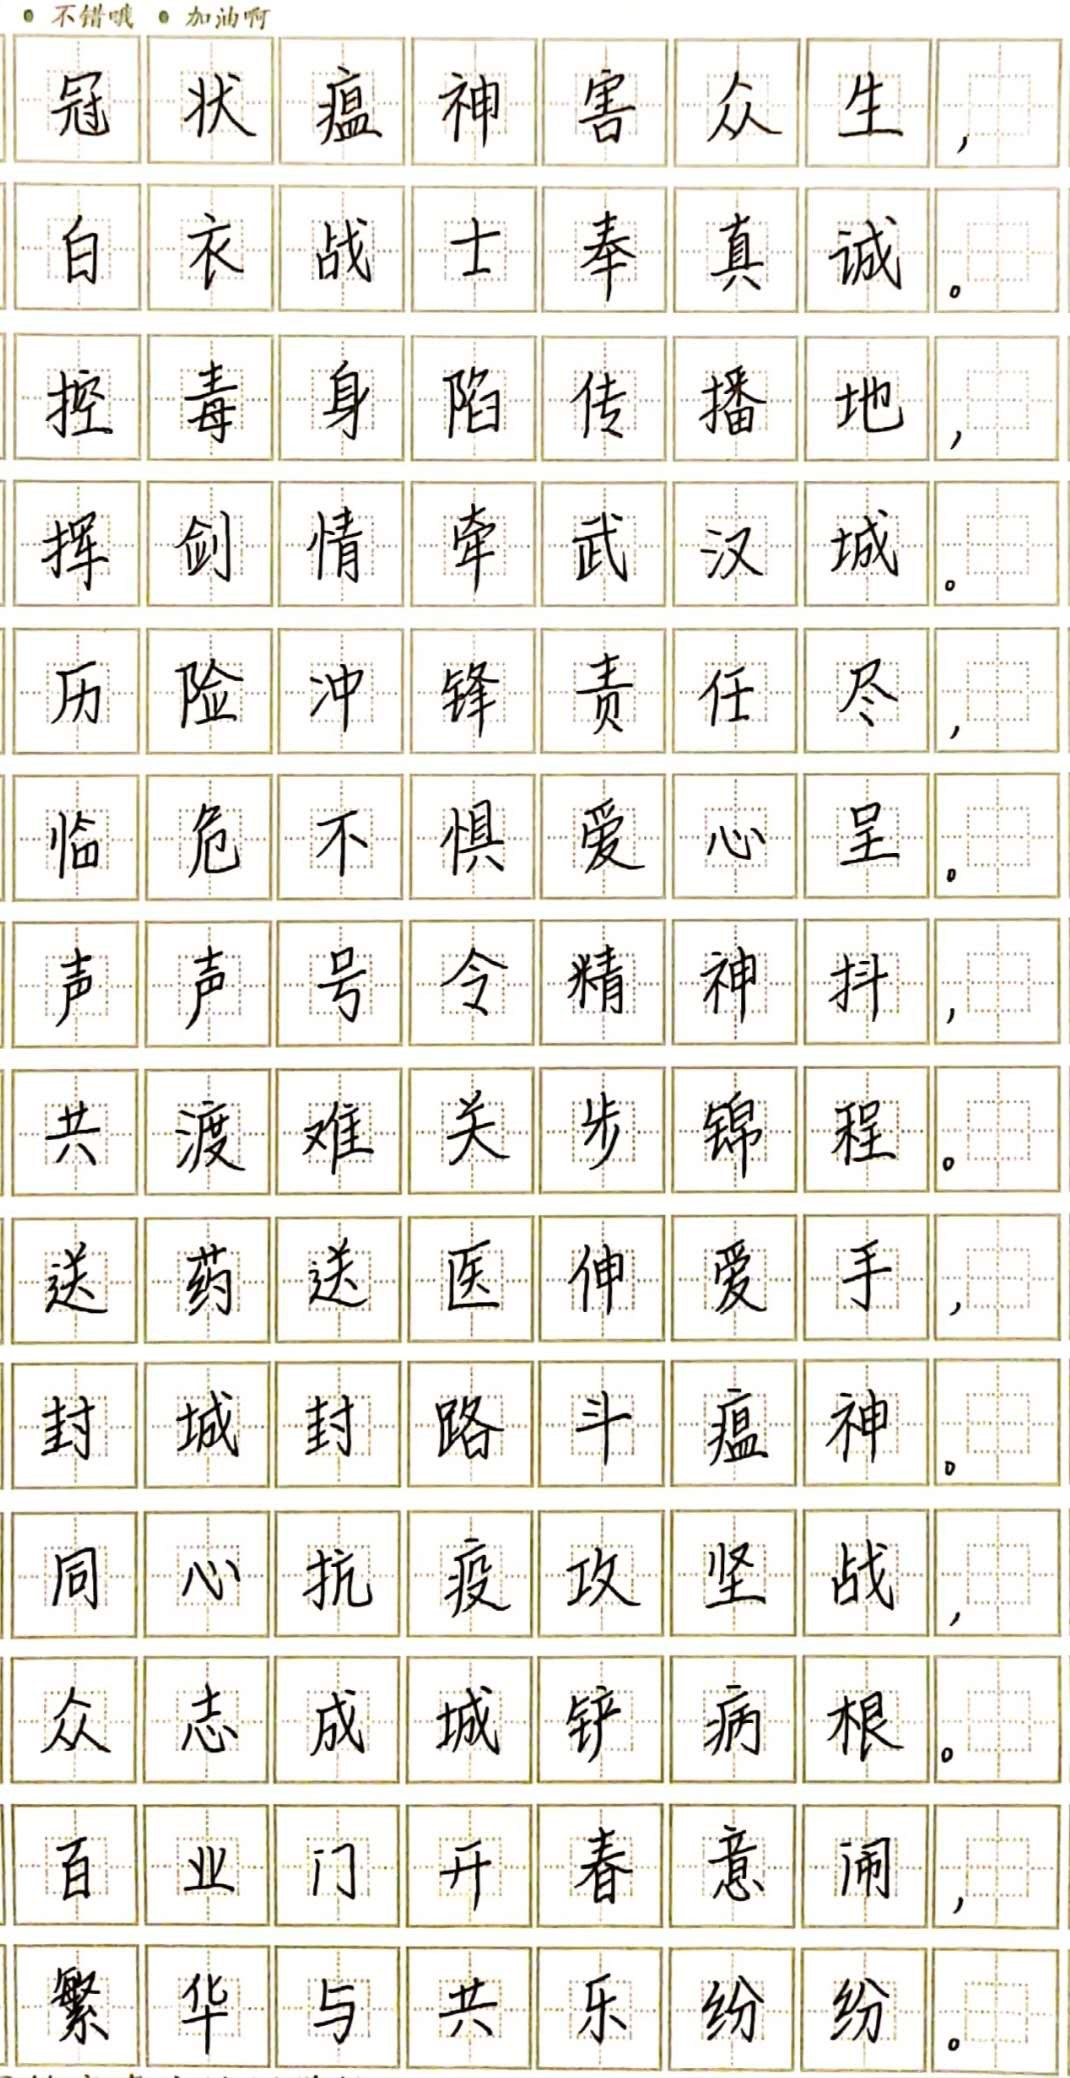 • 不错哦 • 加油啊
冠状瘟神害众生，
白衣战士奉真诚。
控毒身陷传播地，
挥剑情牵武汉城。
历险冲锋责任尽，
临危不惧爱心呈。
声声号令精神抖，
共渡难关步锦程。
送药送医伸爱手，
封城封路斗瘟神。
同心抗疫攻坚战，
众志成城铲病根。
百业门开春意闹，
繁华与共乐纷纷。